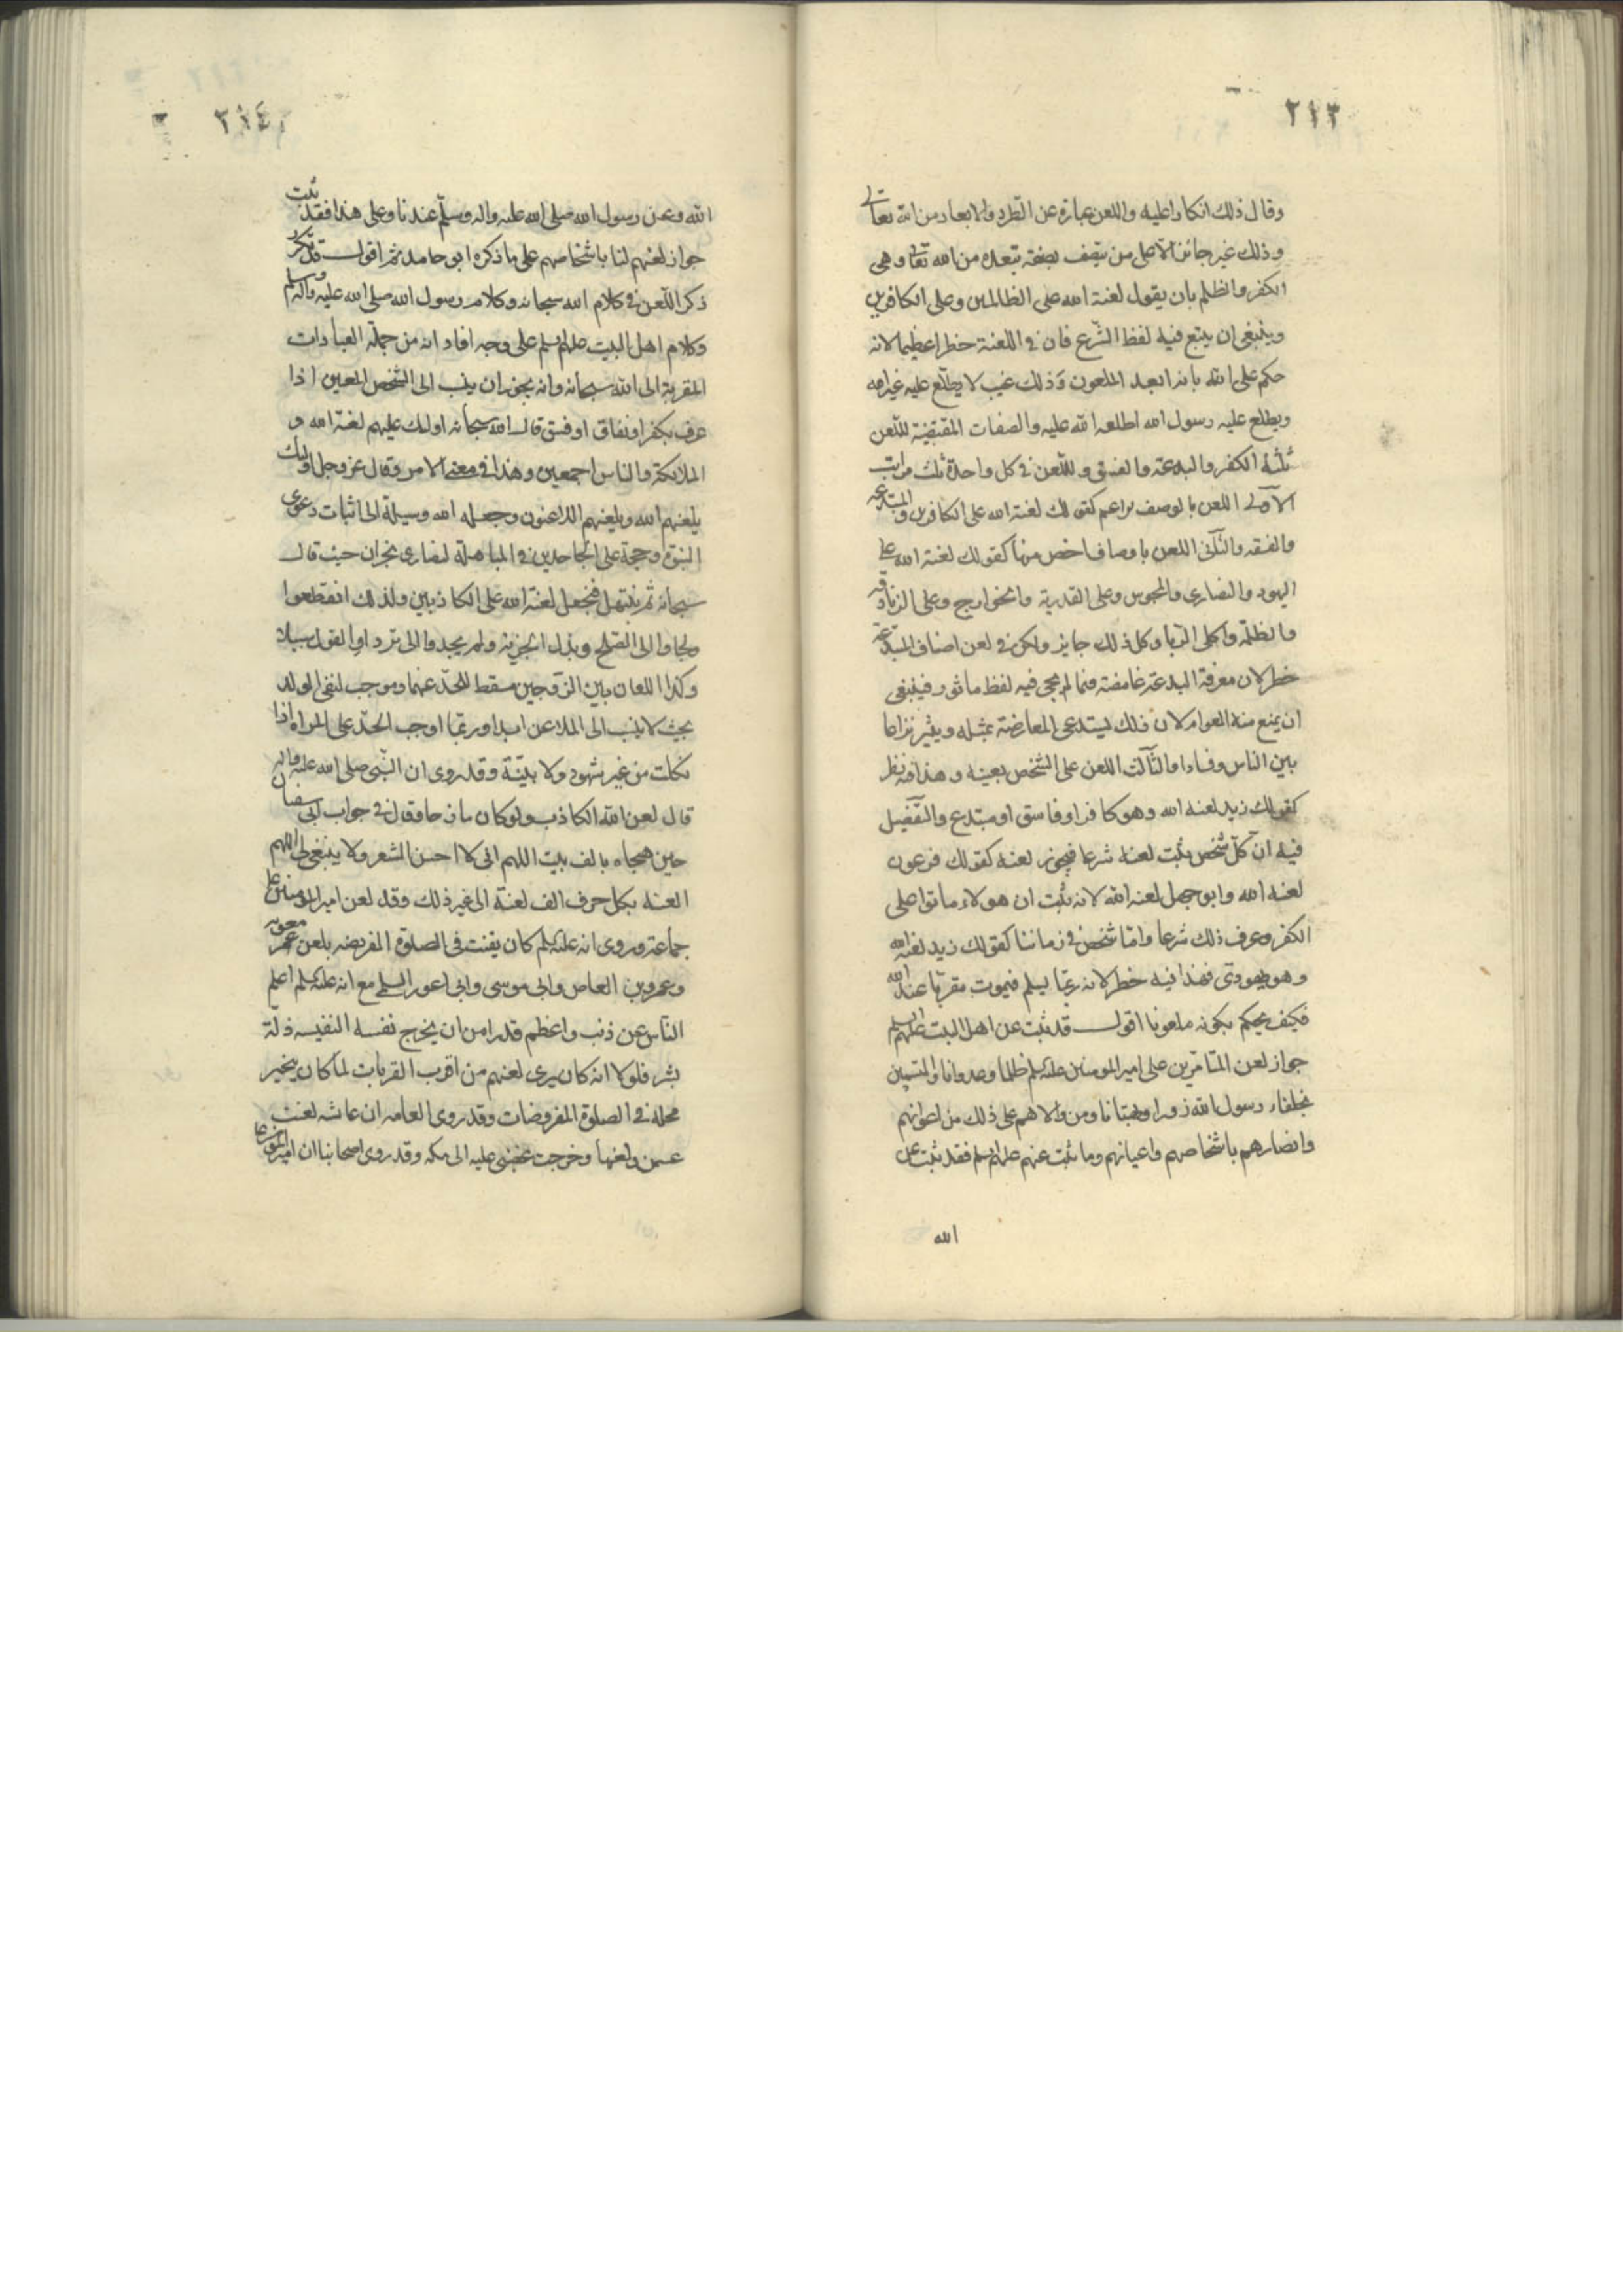 ٢١٣
وقال ذلك انكارا عليه واللعن عبارة عن الطرد والابعاد من الله تعالى
وذلك غير جائز الا على من يتصف بصفة تبعده من الله تعالى وهي
الكفر والظلم بان يقول لعنة الله على الظالمين وعلى الكافرين
وينبغي ان يتبع فيه لفظ الشرع فان في اللعنة خطرا عظيما لانه
حكم على الله بانه ابعد الملعون وذلك غيب لا يطلع عليه غير الله
ويطلع عليه رسول الله اطلعه الله عليه والصفات المقتضية للعن
ثلثة الكفر والبدعة والفسق وللعن في كل واحدة ثلث مراتب
الاولى اللعن بالوصف الاعم كقولك لعنة الله على الكافرين والمبتدعه
والفسقه والثاني اللعن باوصاف اخص منها كقولك لعنة الله على
اليهود والنصارى والمجوس وعلى القدرية والخوارج وعلى الزنادقه
والظلمة وآكلي الربا وكل ذلك جايز ولكن في لعن اصناف المبتدعة
خطر لان معرفة البدعة غامضة فما لم يجئ فيه لفظ ماثور فينبغي
ان يمنع منه العوام لان ذلك يستدعي المعارضة بمثله ويثير نزاعا
بين الناس وفسادا والثالث اللعن على الشخص بعينه وهذا فيه نظر
كقولك زيد لعنه الله وهو كافر او فاسق او مبتدع والتفصيل
فيه ان كل شخص يثبت لعنه شرعا فيجوز لعنه كقولك فرعون
لعنه الله وابو جهل لعنه الله لانه ثبت ان هولاء ماتوا على
الكفر وعرف ذلك شرعا واما شخص في زماننا كقولك زيد لعنه الله
وهو يهودي فهذا فيه خطر لانه ربما يسلم فيموت مقربا عند الله
فكيف يحكم بكونه ملعونا اقول قد ثبت عن اهل البيت عليهم السلم
جواز لعن المتامرين على امير المومنين عليه السلم ظلما وعدوانا والمتسمين
بخلفاء رسول الله زورا وبهتانا ومن والاهم على ذلك من اعوانهم
وانصارهم باشخاصهم واعيانهم وما ثبت عنهم عليهم السلم فقد ثبت عن
الله
٢١٤
الله وعن رسول الله صلى الله عليه واله وسلم عندنا وعلى هذا فقد ثبت
جواز لعنهم لنا باشخاصهم على ما ذكره ابو حامد ثم اقول قد تكرر
ذكر اللعن في كلام الله سبحانه وكلام رسول الله صلى الله عليه واله وسلم
وكلام اهل البيت عليهم السلم على وجه افاد انه من جملة العبادات
المقربة الى الله سبحانه وانه يجوز ان ينسب الى الشخص المعين اذا
عرف بكفر او نفاق او فسق قال الله سبحانه اولئك عليهم لعنة الله و
الملائكة والناس اجمعين وهذا في معنى الامر وقال عز وجل اولئك
يلعنهم الله ويلعنهم اللاعنون وجعله الله وسيلة الى اثبات دعوى
النبوة وحجة على الجاحدين في المباهلة لنصارى نجران حيث قال
سبحانه ثم نبتهل فنجعل لعنة الله على الكاذبين ولذلك انقطعوا
ولجاوا الى الصلح وبذل الجزية ولم يجدوا الى ترداد القول سبيلا
وكذا اللعان بين الزوجين مسقط للحد عنهما وموجب لنفي الولد
بحيث لا ينسب الى الملاعن ابدا وربما اوجب الحد على المراة اذا
نكلت من غير شهود ولا بيّنة وقد روى ان النبي صلى الله عليه واله
قال لعن الله الكاذب ولو كان مازحا وقال في جواب ابي سفيان
حين هجاه بالف بيت اللهم اني لا احسن الشعر ولا ينبغي لي اللهم
العنه بكل حرف الف لعنة الى غير ذلك وقد لعن امير المومنين ع
جماعة وروى انه عليه السلم كان يقنت في الصلوة المفروضه بلعن معويه
وعمرو بن العاص وابي موسى وابي اعور السلمي مع انه عليه السلم اعلم
الناس عن ذنب واعظم قدرا من ان يخرج نفسه النفيسه زلة
بشر فلولا انه كان يرى لعنهم من اقرب القربات لما كان يتخير
محله في الصلوة المفروضات وقد روى العامه ان عائشه لعنت
عثمن ولعنها وخرجت غضبى عليه الى مكه وقد روى اصحابنا ان امير المومنين ع